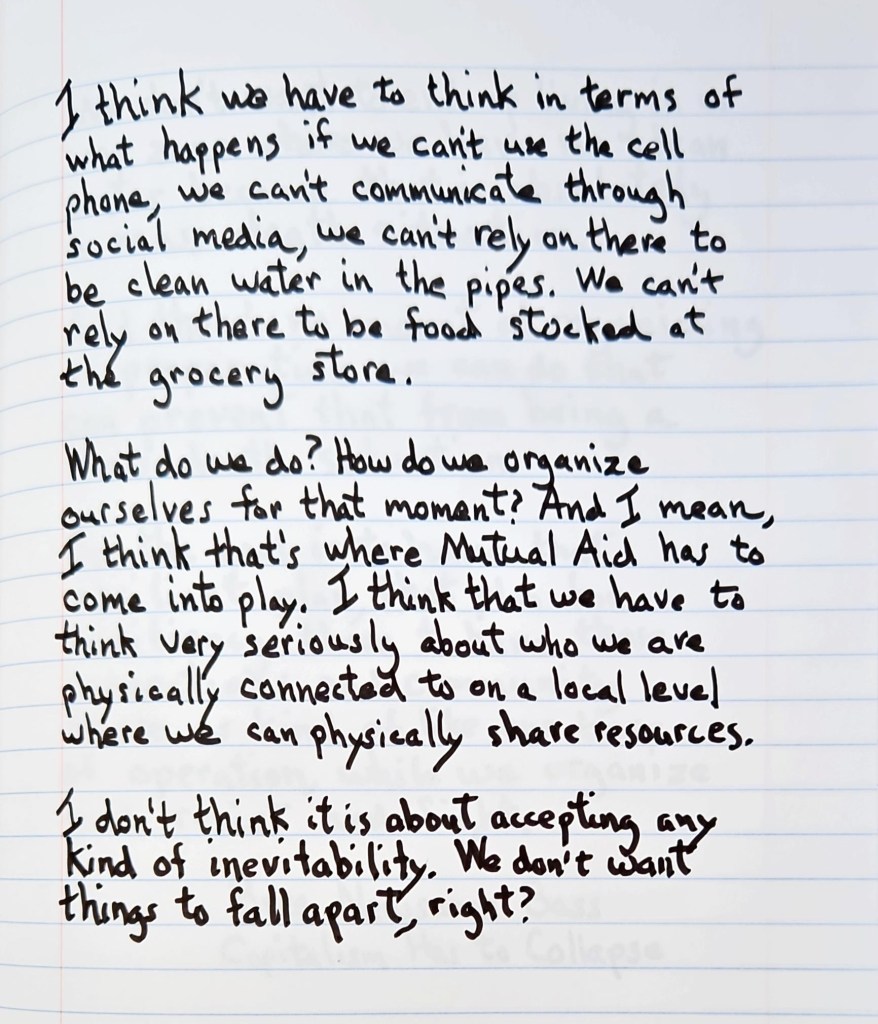 I think we have to think in terms of
what happens if we can't use the cell
phone, we can't communicate through
social media, we can't rely on there to
be clean water in the pipes. We can't
rely on there to be food stocked at
the grocery store.
What do we do? How do we organize
ourselves for that moment? And I mean,
I think that's where Mutual Aid has to
come into play. I think that we have to
think very seriously about who we are
physically connected to on a local level
where we can physically share resources.
I don't think it is about accepting any
kind of inevitability. We don't want
things to fall apart, right?
Capitalism Has to Collapse